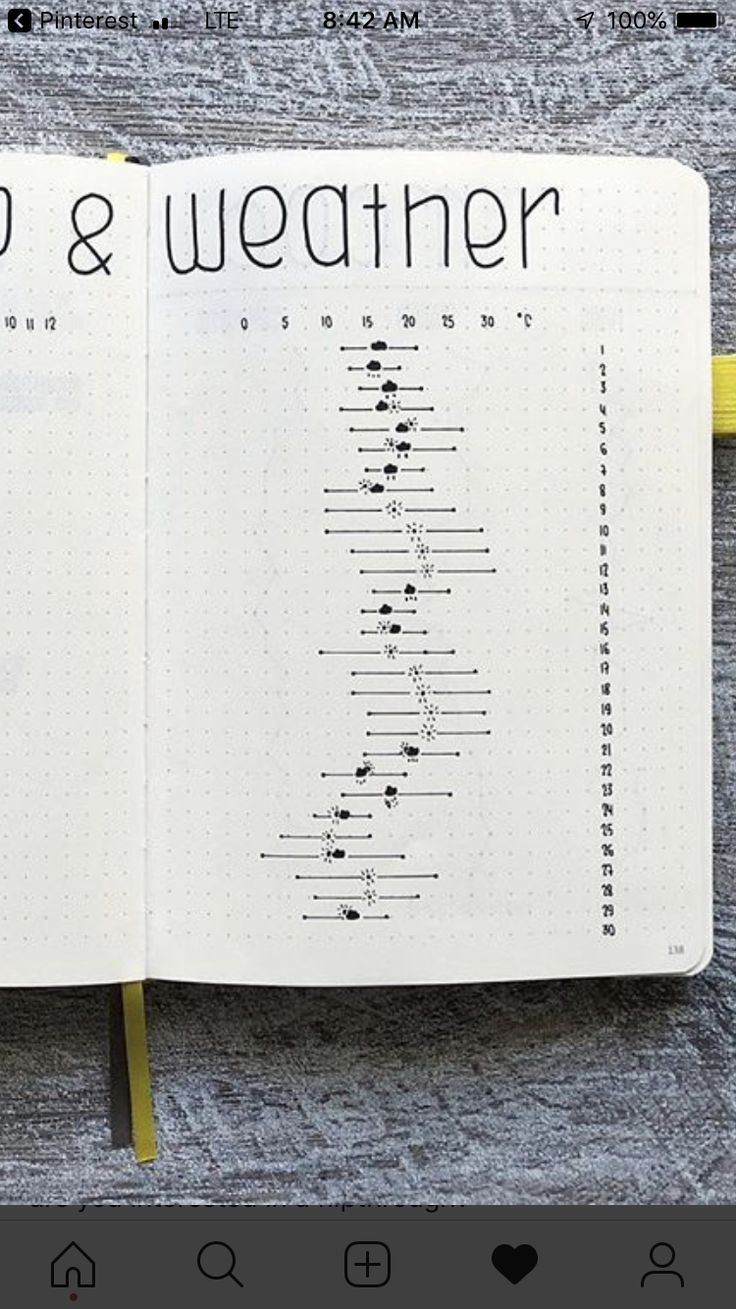 Pinterest LTE 8:42 AM 100%
& weather
10 11 12
0 5 10 15 20 25 30 °C
1
2
3
4
5
6
7
8
9
10
11
12
13
14
15
16
17
18
19
20
21
22
23
24
25
26
27
28
29
30
138
are you interested in a flipthrough?